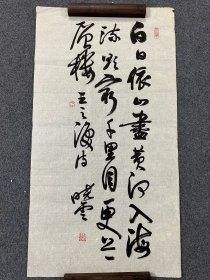 白日依山盡黄河入海
流欲窮千里目更上
層樓
王之渙诗
曉雲